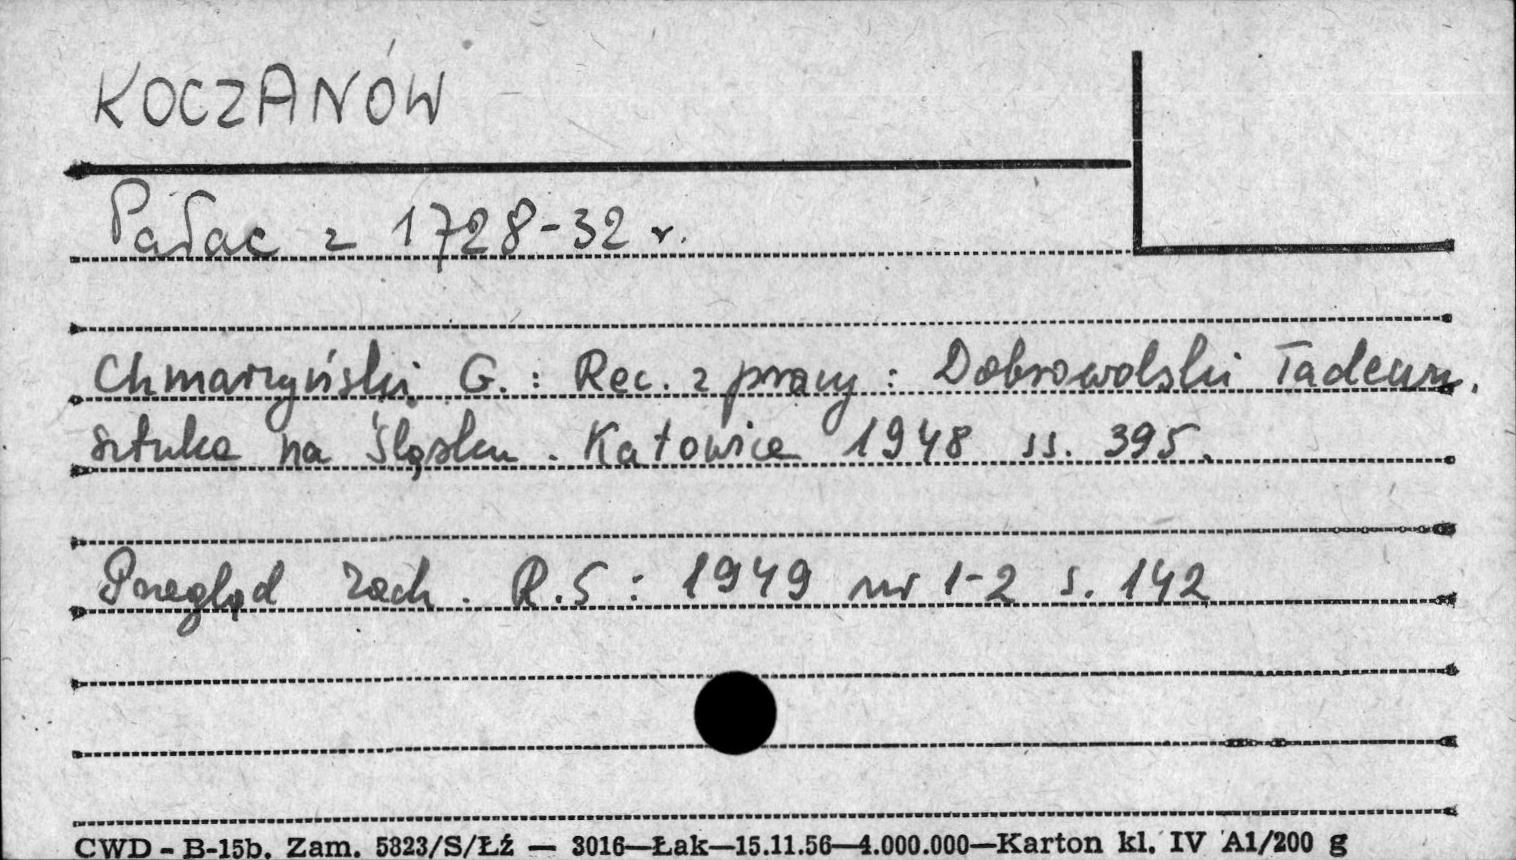 KOCZANÓW
Pałac z 1728-32 r.
Chmarzyński G. : Rec. z pracy : Dobrowolski Tadeusz.
Sztuka na Śląsku. Katowice 1948 ss. 395.
Przegląd Zach. R.5 : 1949 nr 1-2 s. 142
CWD - B-15b. Zam. 5323/S/Łź — 3016—Łak—15.11.56—4.000.000—Karton kl. IV A1/200 g